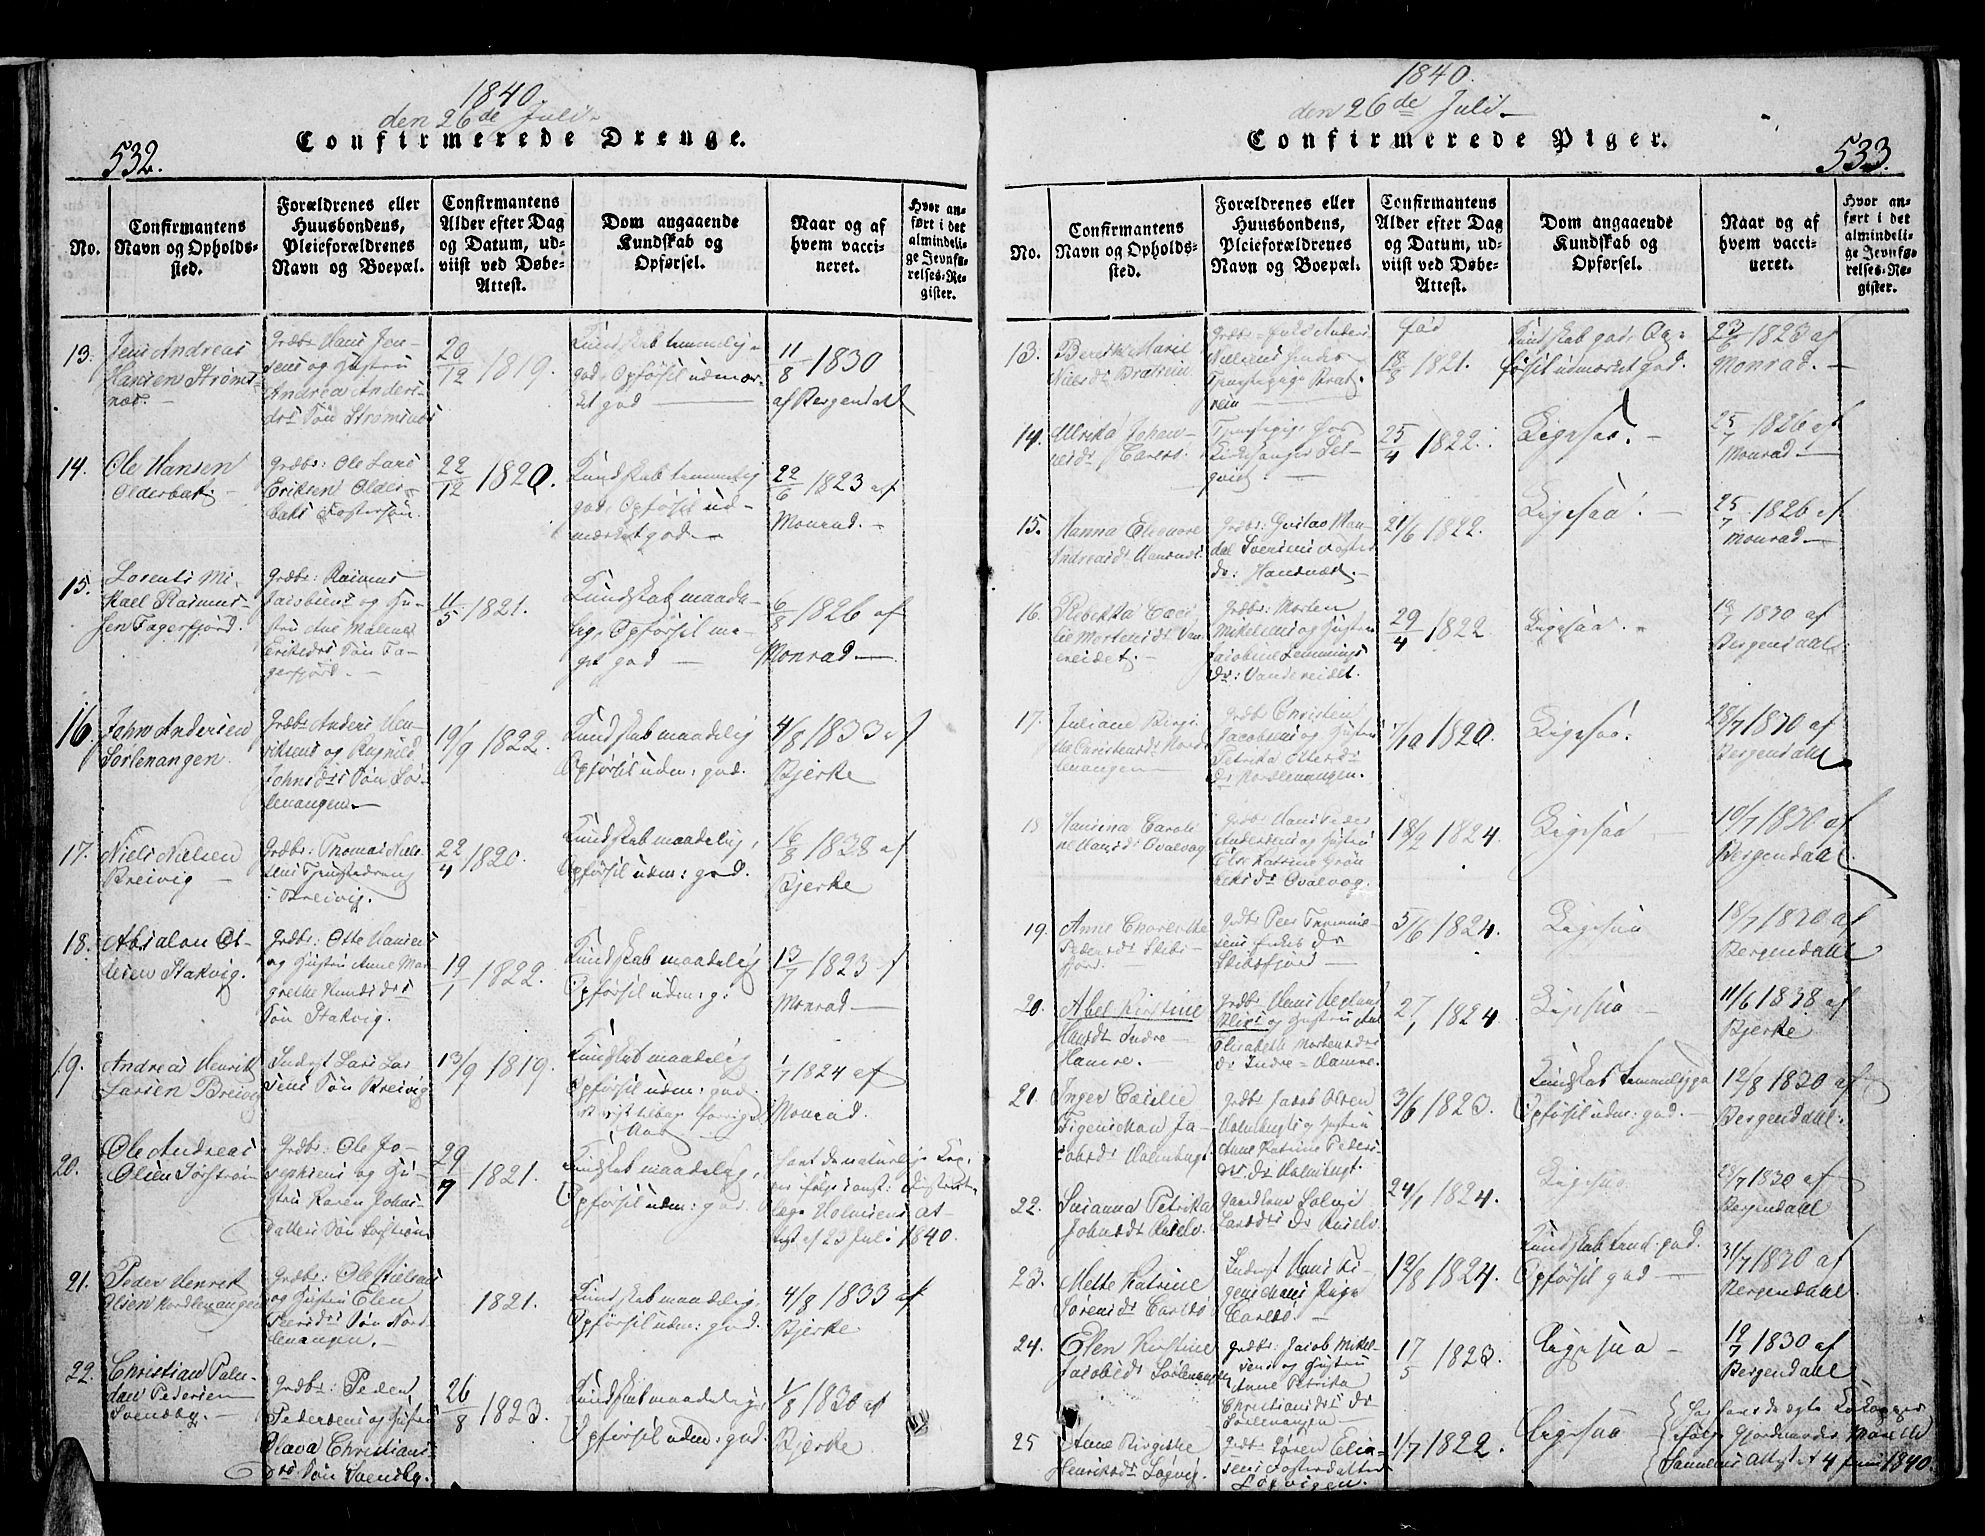 1840
den 26de Juli
Confirmerede Drenge.
532.
No.
Confirmantens
Navn og Opholds-
sted.
Forældrenes eller
Huusbondens,
Pleieforældrenes
Navn og Boepæl.
Confirmantens
Alder efter Dag
og Datum, ud-
viist ved Døbe-
Attest.
Dom angaaende
Kundskab og
Opførsel.
Naar og af
hvem vacci-
neret.
Hvor an-
ført i det
almindeli-
ge Jevnfø-
relses-Re-
gister.
13.
Jens Andreas
Hansen Strøms-
næs.
Grdbr Hans Jen-
sens og Hustru
Andrea Anders-
drs Søn Strømnæs
20/12 1819.
Kundskab temmelig
god, Opførsel udmær-
ket god
11/8 1830
af Bergendahl
14.
Ole Hansen
Olderbak
Grdbr: Ole Lars
Eriksen Older-
bak Fostersøn
22/12 1820.
Kundskab temmelig
god, Opførsel ud-
mærket god
22/6 1823 af
Monrad.
15.
Lorents Mi-
kael Rasmus-
sen Fagerfjord.
Grdbr: Rasmus
Jacobsens og Hu-
stru Ane Malene
Eriksdrs Søn Fa-
gerfjord.
11/5 1821.
Kundskab maade-
lig, Opførsel me-
get god
6/8 1826 af
Monrad
16.
John Andersen
Sørlenangen.
Grdbr Anders Hen-
riksens og Ragnild
Johnsdrs Søn Sør-
lenangen.
19/9 1822.
Kundskab maadelig
Opførsel udm: god.
4/8 1833 af
Bjerke
17.
Niels Nielsen
Breivig
Grdbr: Thomas Niel-
sens Tjenestedreng
i Breivig.
22/4 1820.
Kundskab maadelig,
Opførsel udm: god.
16/8 1838 af
Bjerke
18.
Absalon Ot-
tesen Stakvig.
Grdbr: Otte Hansens
og Hustru Ane Mar-
grethe Knudsdrs
Søn Stakvig.
19/1 1822.
Kundskab maadelig
Opførsel udm: g:
13/7 1823 af
Monrad
19.
Andreas Henrik
Larsen Breivig
Inderst Lars Lar-
sens Søn Breivig
13/9 1819.
Kundskab maadelig
Opførsel udm: god.
Aar
1/7 1824 af
Monrad.
20.
Ole Andreas
Olsen Sørstrøm
Grdbr: Ole Jo-
sephsens og Hu-
stru Karen Johns-
Datters Søn Sørstrøm
29/9 1821.
Kundskab maadelig,
Opførsel udm: god.
havt de naturlige Kop-
per ifølge const: District-
læge Holmsens At-
test af 23 Juli 1840.
21.
Peder Henrik
Olsen Nordlenangen
Grdbr: Ole Nielsens
og Hustru Elen
Peersdrs Søn Nord-
lenangen.
1821.
Kundskab maadelig,
Opførsel udm: god.
4/8 1833 af
Bjerke.
22.
Christian Palu-
dan Pedersen
Svendsby.
Grdbr: Peder
Pedersens og Hustru
Olava Christians-
drs Søn Svendsby.
26/8 1823.
Kundskab maadelig,
Opførsel udm: god.
1/8 1830 af
Bjerke.
1840.
den 26de Juli
Confirmerede Piger.
533.
No.
Confirmantens
Navn og Opholds-
sted.
Forældrenes eller
Huusbondens,
Pleieforældrenes
Navn og Boepæl.
Confirmantens
Alder efter Dag
og Datum, ud-
viist ved Døbe-
Attest.
Dom angaaende
Kundskab og
Opførsel.
Naar og af
hvem vacci-
neret.
Hvor an-
ført i det
almindeli-
ge Jevnfø-
relses-Re-
gister.
13.
Berethe Marie
Nielsdr Bratrein
Tjenestepige Brat-
rein
fød
18/8 1821.
Kundskab god, Op-
førsel udmærket god.
23/6 1823 af
Monrad.
14.
Ulrika Johan-
nesdr Carlsø.
Tjenestepige hos
Kirkesanger Sel-
qvist.
25/4 1822.
Ligesaa.
25/7 1826 af
Monrad
15.
Hanna Eleonore
Andreasdr Hansnæs.
Grdbr: Gustav Han-
dal Svensens Foster
dr: Hansnæs.
21/6 1822.
Ligesaa.
25/7 1826 af
Monrad
16.
Rebekka Ceci-
lie Mortensdr Van-
reidet.
Grdbr: Morten
Mikelsens og Hustru
Jacobine Lemmings
dr: Vandereidet.
29/4 1822.
Ligesaa.
18/7 1830 af
Bergendahl
17.
Juliane Birgi-
the Christensdr Nord-
lenangen
Grdbr Christen
Jacobsens og Hustru
Petrika Ottesdrs
dr Nordlenangen.
7/10 1820.
Ligesaa.
28/7 1830 af
Bergendahl
18
Hansina Caroli-
ne Hansdr Qvalvog
Grdbr Hans Peder
Andersens og Hustru
Else Katrine Grøn
beksdr Qvalvog.
18/2 1824.
Ligesaa
10/7 1830 af
Bergendahl.
19.
Anne Chorethe
Pedersdr Skibs-
fjord.
Grdbr Peer Tommes-
sens Enkes dr
Skibsfjord
5/6 1824.
Ligesaa
18/7 1830 af
Bergendahl
20.
Abel Kirstine
Hansdr Indre
Hamre.
Grdbr Hans Hegelund
Blixs og Hustru Ane
Elisabeth Mortensdrs
dr Indre-Hamre.
27/1 1824.
Ligesaa
11/6 1838 af
Bjerke
21.
Inger Cecilie
Figenschau Ja-
cobsdr Holmbugt
Grdbr Jacob Olsen
Holmbugts og Hustru
Anne Katrine Peders-
drs dr Holmbugt.
3/6 1823.
Kundskab temmelig go
Opførsel udm: god.
12/8 1830 af
Bergendahl.
22.
Susanna Petrika
Johnsdr Kaselv.
24/1 1824.
Ligesaa
28/7 1830 af
Bergendahl
23.
Mette Katrine
Sørensdr Carlsø
Inderst Hans Fi-
genschaus Pige
Carlsø.
12/8 1824.
Kundskab teml: god.
Opførsel god
31/7 1830 af
Bergendahl.
24.
Elen Kirstine
Jacobsdr Sørlenangen
Grdbr: Jacob Mikel-
sens og Hustru
Anne Petrika
Christiansdrs dr
Sørlenangen
17/5 1823.
Ligesaa
19/7 1830 af
Bergendahl
25
Anne Birgithe
Henriksdr Løgvig.
Grdbr: Søren Elia-
sens Fosterdatter
Løgvigen.
1/7 1822.
Ligesaa
har havt de ægte Kokopper
ifølge Gjordmoder Marethe
Samuelsens Attest af 4 Juni 1840.